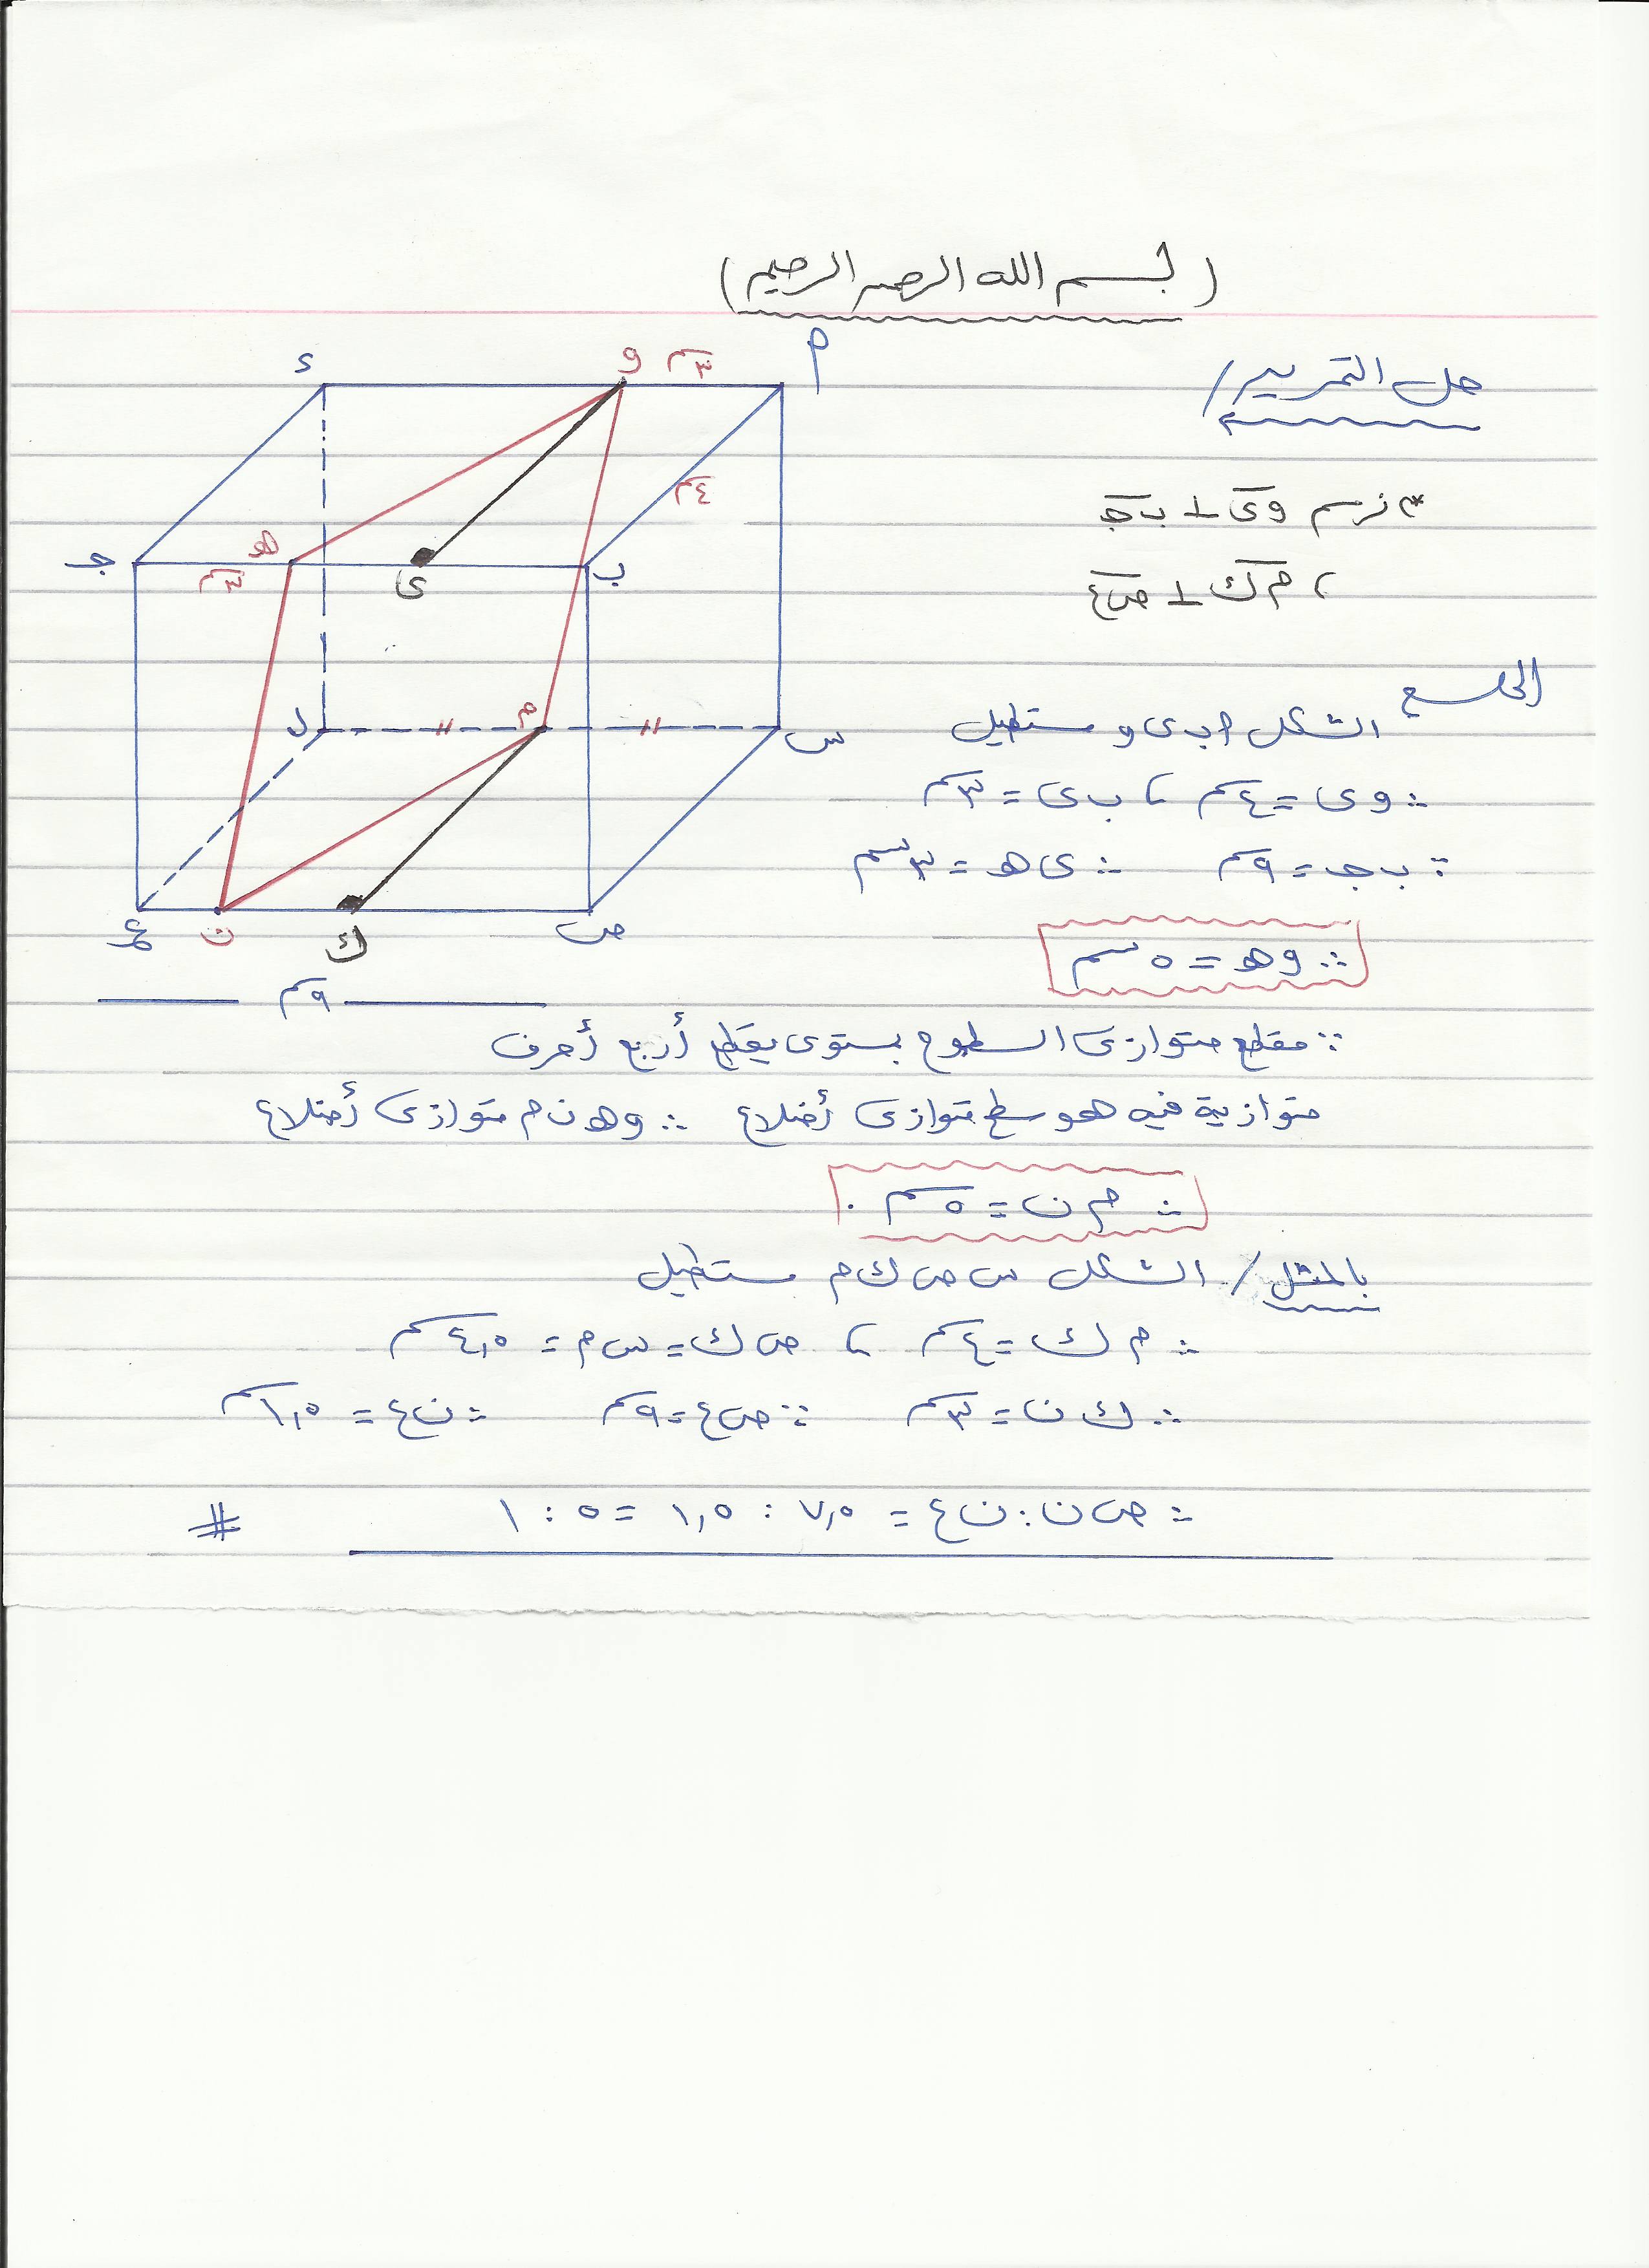 (بسم الله الرحمن الرحيم)
حل التمرين /
* نرسم وى ⊥ ب ج
، م ك ⊥ ص ع
الشكل أ ب ى و مستطيل
∴ وى = ٤سم ، ب ى = ٣سم
∵ ب جـ = ٩سم ∴ ى هـ = ٣سم
∴ و هـ = ٥سم
∵ مقطع متوازى السطوح بمستوى يقطع أربع أحرف
متوازية فيه هو سطح متوازى أضلاع ∴ و هـ ن م متوازى أضلاع
∴ م ن = ٥سم .
بالمثل / الشكل س ص ك م مستطيل
∴ م ك = ٤سم ، ص ك = س م = ٤,٥سم
∴ ك ن = ٣سم ∵ ص ع = ٩سم ∴ ن ع = ١,٥سم
∴ ص ن : ن ع = ٧,٥ : ١,٥ = ٥ : ١ #
ء و ٣سم أ
٤سم
جـ هـ ى ب
٣سم
ل م س
ع ن ك ص
٩سم